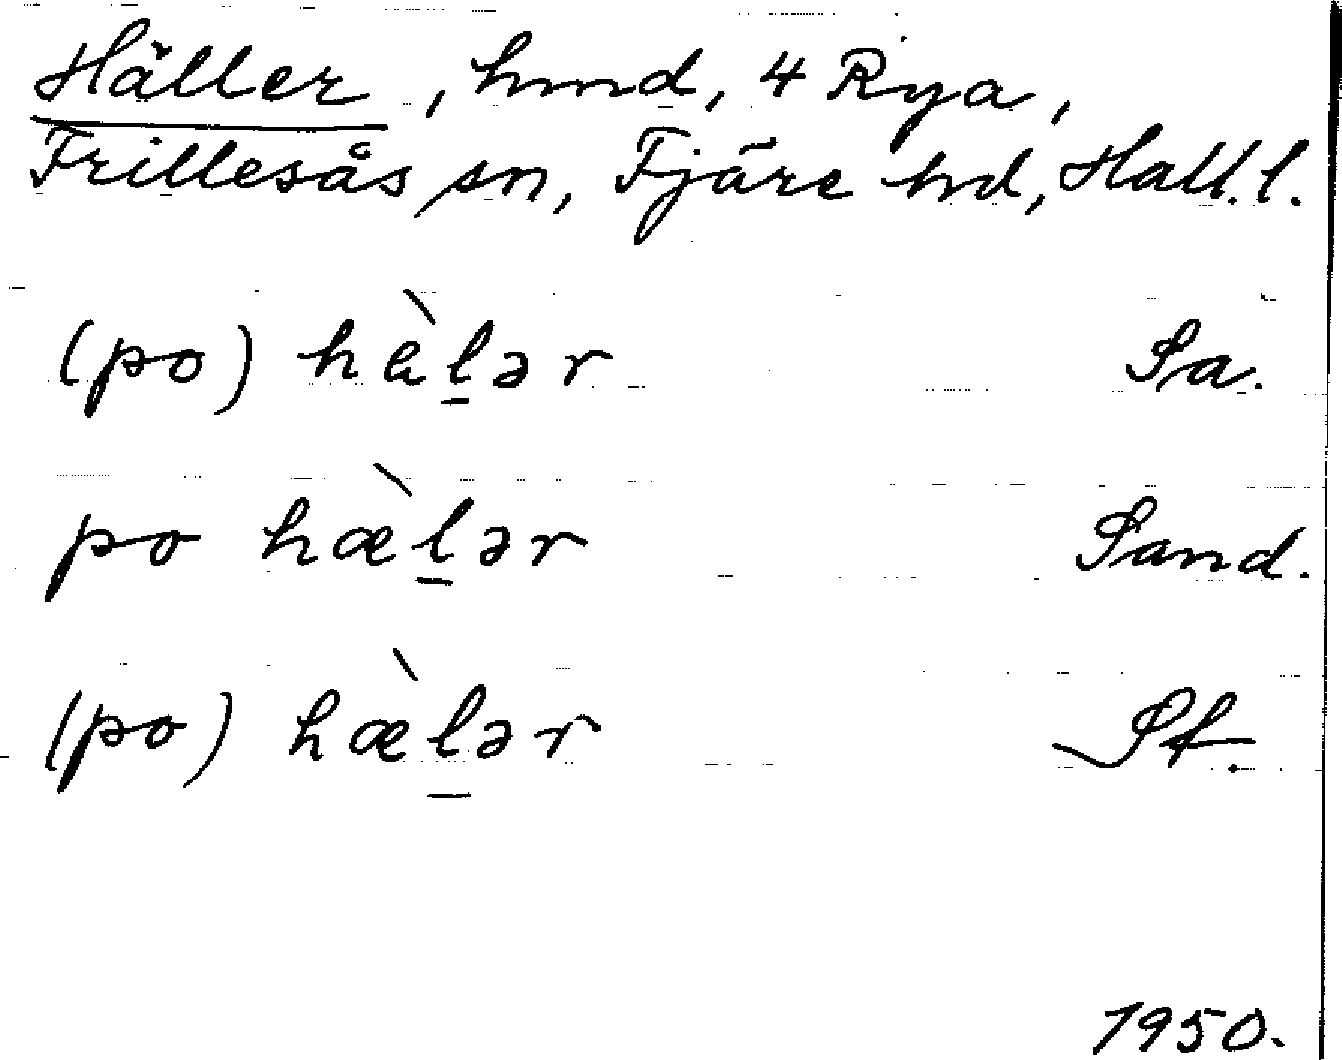 Häller, hmd, 4 Rya,
Frillesås sn, Fjäre hd, Hall. l.
(po) hèl̠ər Sa.
po hæ̀l̠ər Sand.
(po) hæ̀l̠ər St.
1950.